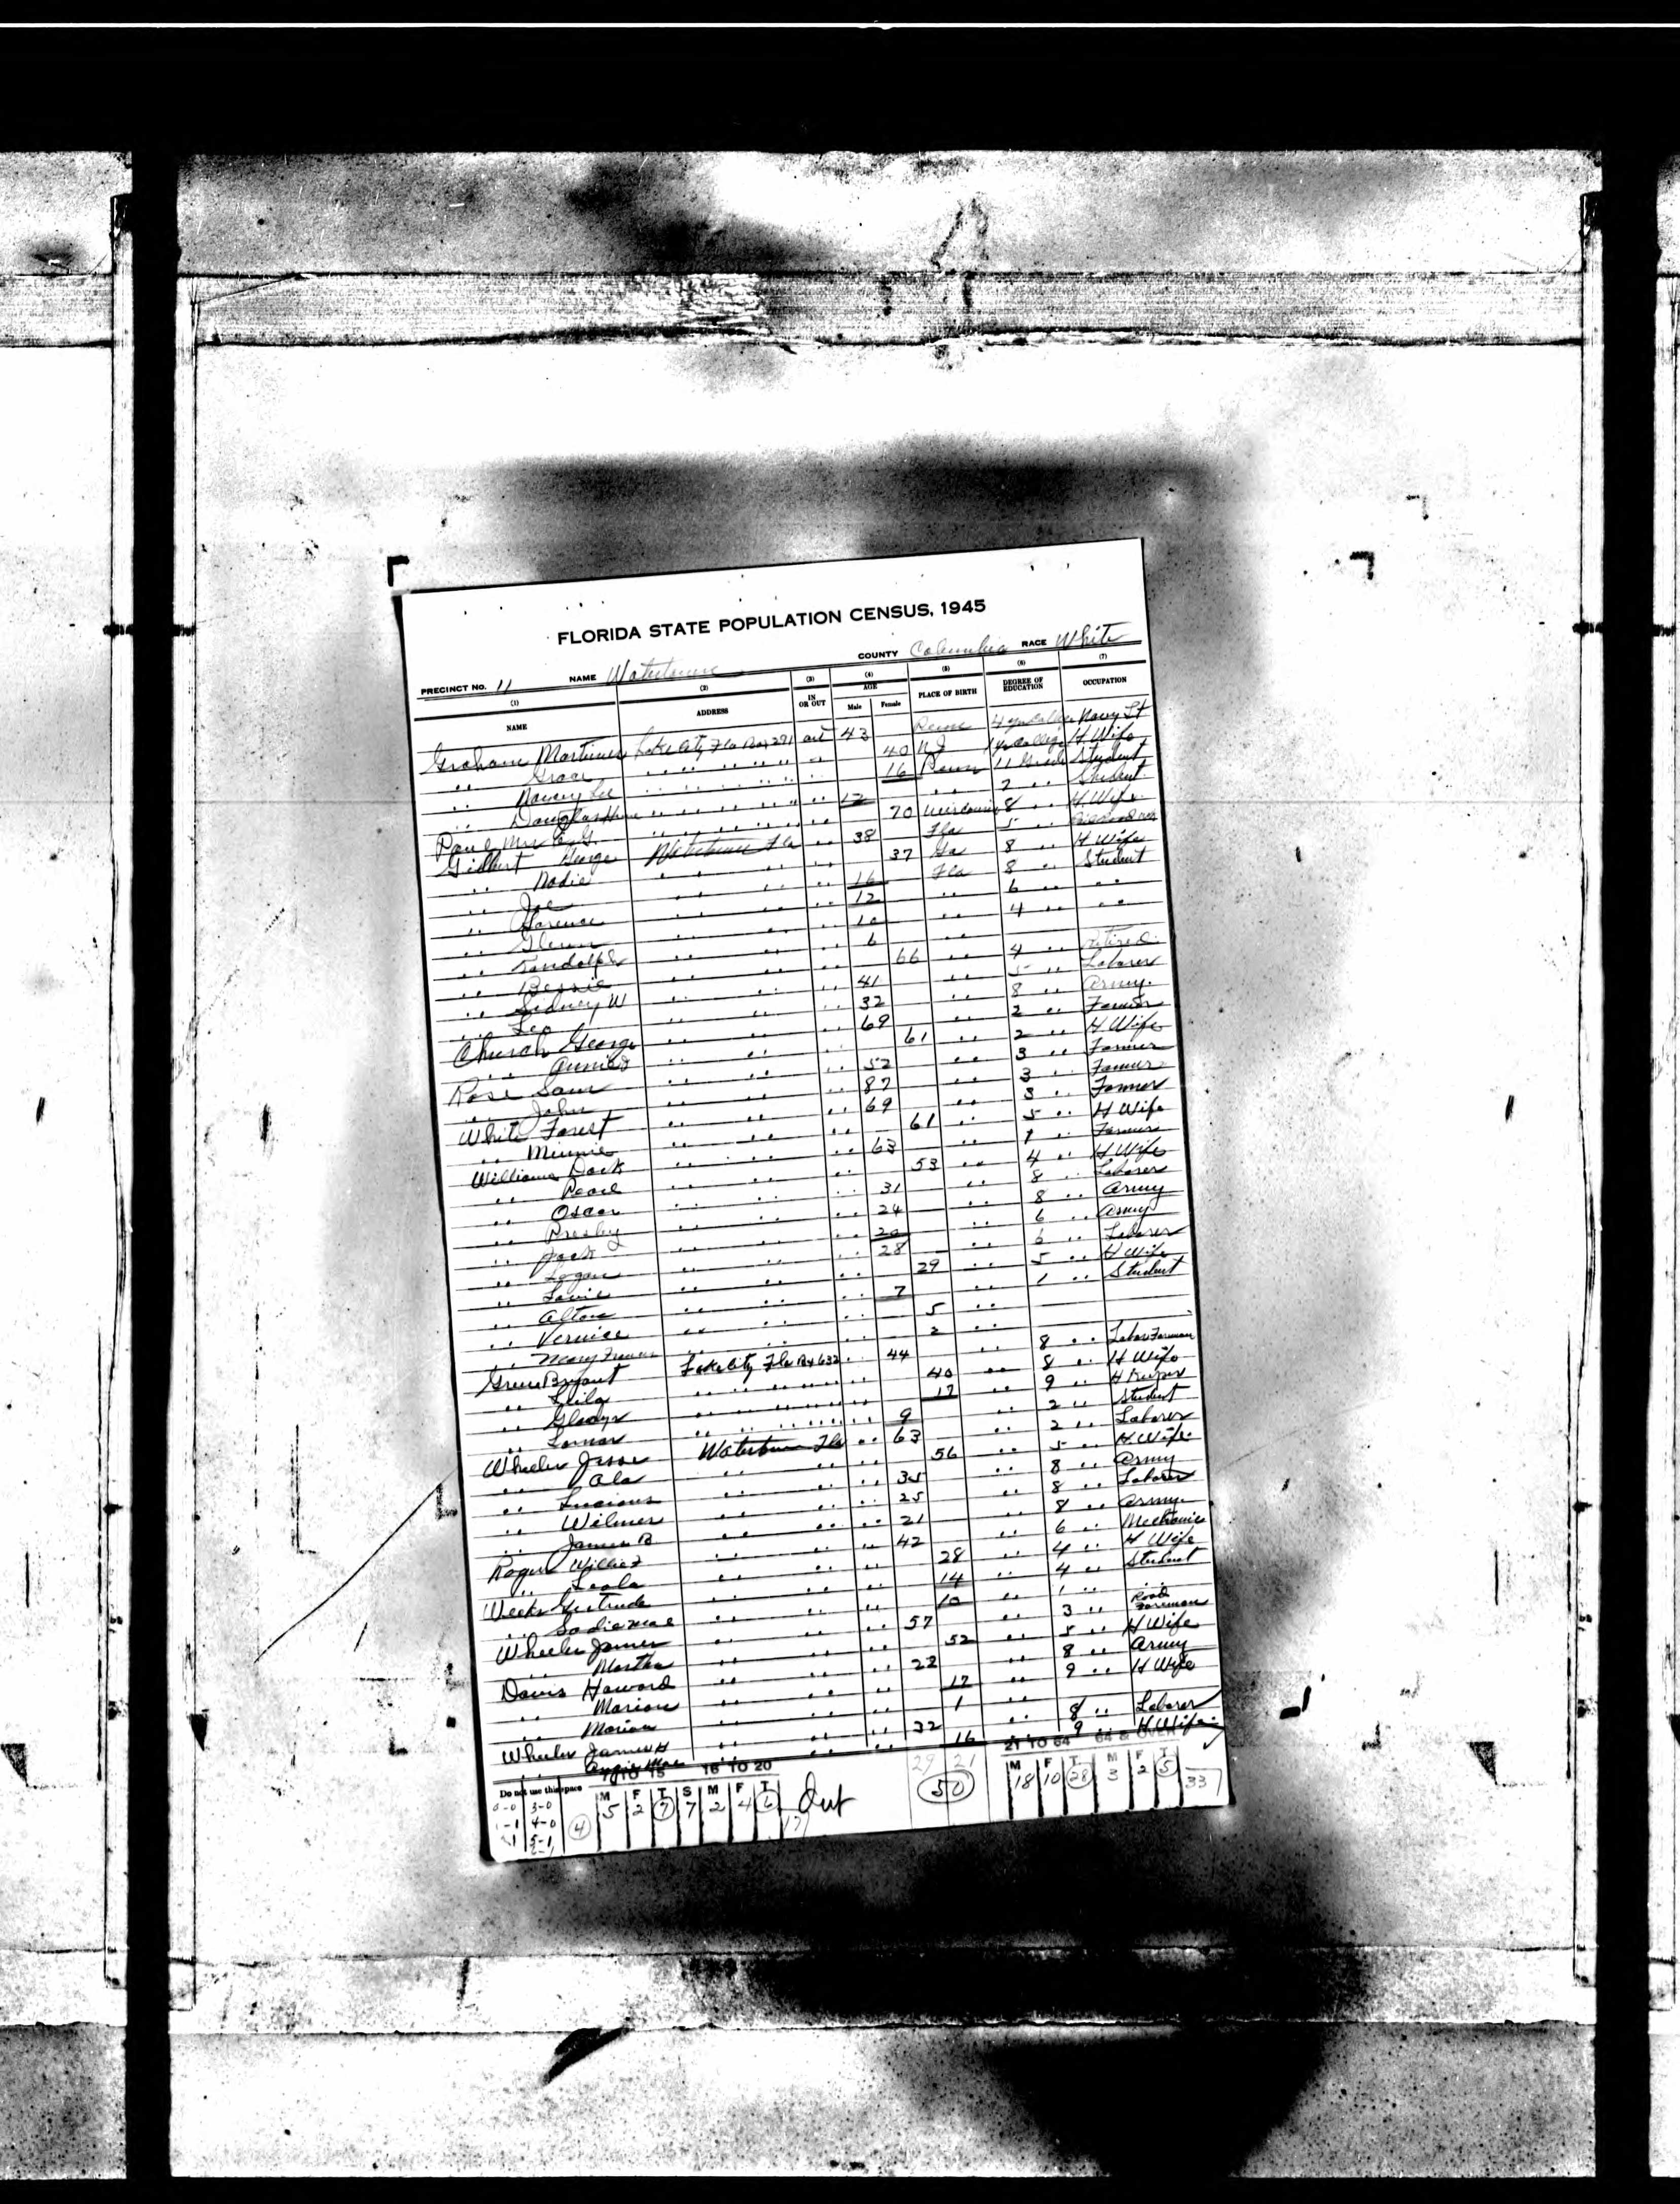 FLORIDA STATE POPULATION CENSUS, 1945
PRECINCT NO. 11 NAME Watertown COUNTY Columbia RACE White
(1) (2) (3) (4) (5) (6) (7)
NAME ADDRESS IN OR OUT AGE Male Female PLACE OF BIRTH DEGREE OF EDUCATION OCCUPATION
Graham Mortimer Lake City Fla Box 291 out 43 Penn 4 yr College Navy Lt
" Grace " " " " " " 40 N J 1 yr College H Wife
" Nancy Lee " " " " " " 16 Penn 11 Grade Student
" Douglas " " " " " " 12 " " 7 " " Student
Paul Mrs E. G. " " " " " " 70 Wisconsin 8 " " H. Wife
Gilbert George Watertown Fla " " 38 Fla 5 " "
" Nadie " " " " 37 Ga 8 " " H Wife
" Joe " " " " 16 Fla 8 " " Student
" Clarence " " " " 12 " " 6 " " " "
" Glenn " " " " 10 " " 4 " " " "
" Randolph " " " " 6 " "
" Bessie " " " " 66 " " 4 " " Retired
" Sidney W " " " " 41 " " 5 " " Laborer
" Leo " " " " 32 " " 8 " " Army
Church George " " " " 69 " " 2 " " Farmer
" Annie " " " " 61 " " 2 " " H Wife
Rose Sam " " " " 52 " " 3 " " Farmer
" John " " " " 87 " " 3 " " Farmer
White Forest " " " " 69 " " 3 " " Farmer
" Minnie " " " " 61 " " 5 " " H Wife
Williams Dock " " " " 63 " " " " Farmer
" Pearl " " " " 53 " " 4 " " H Wife
" Oscar " " " " 31 " " 8 " " Laborer
" Presley " " " " 24 " " 8 " " Army
" Jack " " " " 20 " " 6 " " Army
" Logan " " " " 28 " " 6 " " Laborer
" Lovie " " " " 29 " " 5 " " H Wife
" Alton " " " " 7 " " 1 " " Student
" Vernice " " " " 5 " "
" Mary Frances " " " " 2
Green Bryant Lake City Fla Bx 632 " " 44 8 " " Labor Foreman
" Leila " " " " " " 40 " " 8 " " H Wife
" Gladys " " " " " " 17 " " 9 " " H Keeper
" Lamar " " " " " " 9 " " 2 " " Student
Wheeler Jesse Watertown Fla " " 63 " " 2 " " Laborer
" Ola " " " " 56 " " 5 " " H. Wife
" Lucious " " " " 35 " " 8 " " Army
" Wilmer " " " " 25 " " 8 " " Laborer
" James B " " " " 21 8 " " Army
Willie " " " " 42 " " 6 " " Mechanic
" Leola " " " " 28 " " 4 " " H Wife
Weeks Gertrude " " " " 14 " " 4 " " Student
" Sadie Mae " " " " 10 " " 1 " " " "
Wheeler James " " " " 57 " " 3 " " Road Foreman
" Martha " " " " 52 " " 5 " " H Wife
Davis Howard " " " " 22 " " 8 " " Army
" Marion " " " " 17 " " 9 " " H Wife
" Marion " " " " 1 " "
Wheeler James H " " " " 32 " " 8 " " Laborer
" Angie Mae " " " " 16 9 H Wife
Do not use this space 7 TO 15 16 TO 20 29 21 21 TO 64 64 & OVER
M F T S M F T M F T M F T
0-0 3-0 4 5 2 7 7 2 4 6 Out 50 18 10 28 3 2 5 33
1-1 4-0 17
5-1